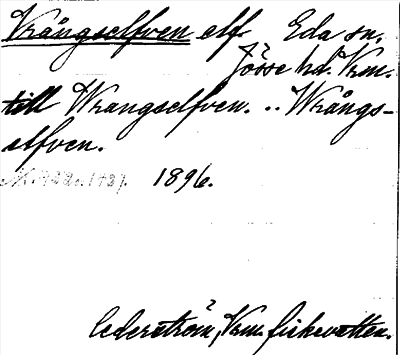 Vrångselfven elf Eda sn.
Jösse hd. Vrm.
till Wrangselfven. .. Wrångs-
elfven.
1896.
Cederström, Vrm. fiskevatten.